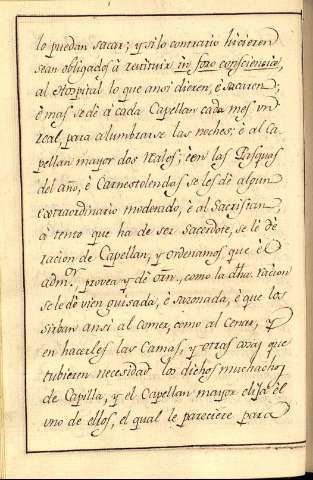 lo puedan sacar; y si lo contrario hicieren
sean obligados à restituir in foro consciencie,
al Hospital lo que ansi dieren, è sacaren;
è mas se dè à cada Capellan cada mes un
real, para alumbrarse las noches; è al Ca-
pellan mayor dos reales; è en las Pasquas
del año, è Carnestolendas se les dè algun
extraordinario moderado, è al Sacristan,
à tento que ha de ser Sacerdote, se le dè
racion de Capellan, y ordenamos que èl
adm.or, provea y dè orn., como la dha. racion
se le dè vien guisada, è sazonada, è que los
sirban ansi al comer, como al cenar, y
en hacerles las Camas, y otras cosas que
tubieren necesidad los dichos muchachos
de Capilla, y el Capellan mayor elija èl
uno de ellos, el qual le pareciere para